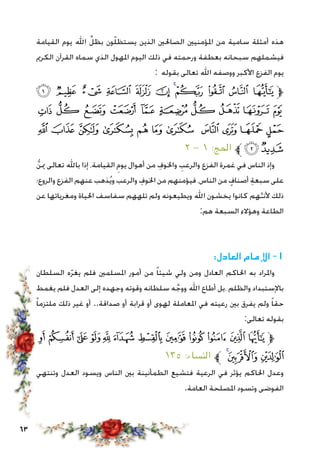 هذه أمثلة سامية من المؤمنيين الصالحين الذين يستظلّون بظلّ الله يوم القيامة
فيشملهم سبحانه بعطفة ورحمته في ذلك اليوم المهول الذي سماه القرآن الكريم
يوم الفزع الأكبر ووصفه الله تعالى بقوله :
﴿ يَا أَيُّهَا النَّاسُ اتَّقُوا رَبَّكُمْ إِنَّ زَلْزَلَةَ السَّاعَةِ شَيْءٌ عَظِيمٌ ١
يَوْمَ تَرَوْنَهَا تَذْهَلُ كُلُّ مُرْضِعَةٍ عَمَّا أَرْضَعَتْ وَتَضَعُ كُلُّ ذَاتِ
حَمْلٍ حَمْلَهَا وَتَرَى النَّاسَ سُكَارَى وَمَا هُم بِسُكَارَى وَلَكِنَّ عَذَابَ اللَّهِ
شَدِيدٌ ٢ ﴾ الحج: ١ - ٢
وإذ الناس في غمرة الفزع والرعب والخوف من أهوال يوم القيامة، إذا بالله تعالى يَمنُّ
على سبعة أصناف من الناس، فيؤمنهم من الخوف والرعب ويُذهب عنهم الفزع والروع؛
ذلك لأنهم كانوا يخشون الله ويطيعونه ولم تلههم سفاسف الحياة ومغرياتها عن
الطاعة وهؤلاء السبعة هم:
١- الإمام العادل:
والمراد به الحاكم العادل ومن ولي شيئاً من أمور المسلمين فلم يغرّه السلطان
بالإستبداد والظلم ,بل أطاع الله ووجّه سلطانه وقوته وجهده إلى العدل فلم يغمط
حقاً ولم يفرق بين رعيته في المعاملة لهوى أو قرابة أو صداقة.. أو غير ذلك ملتزماً
بقوله تعالى:
﴿ يَا أَيُّهَا الَّذِينَ آمَنُوا كُونُوا قَوَّامِينَ بِالْقِسْطِ شُهَدَاءَ لِلَّهِ وَلَوْ عَلَى أَنفُسِكُمْ أَوِ
الْوَالِدَيْنِ وَالْأَقْرَبِينَ ﴾ النساء: ١٣٥
وعدل الحاكم يؤثر في الرعية فتشيع الطمأنينة بين الناس ويسود العدل وتنتهي
الفوضى وتسود المصلحة العامة.
٦٣